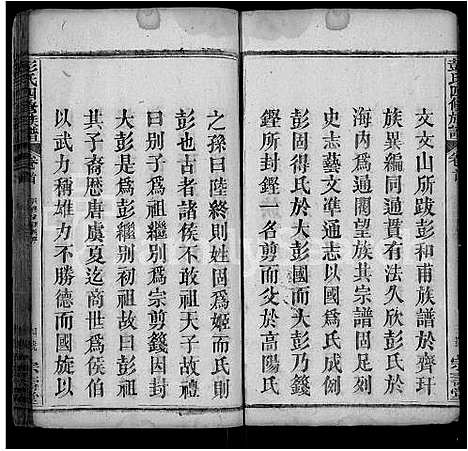 文文山所跋彭和甫族譜於齊玗
族異編同通貫有法久欣彭氏於
海內爲通閥望族其宗譜固足列
史志藝文準通志以國爲氏成例
彭固得氏於大彭國而大彭乃籛
鏗所封鏗一名剪而全於高陽氏
之孫曰陸終則姓因爲姬而氏則
彭也古者諸侯不敢祖天子故
曰別子爲祖繼別爲宗剪籛因
彭於是爲彭繼別初祖故曰彭祖
其子裔歷唐虞夏迄商世爲侯伯
以武力稱雄力不勝德而國旋以
彭氏四修族譜
卷首
彭氏四修族譜
卷首